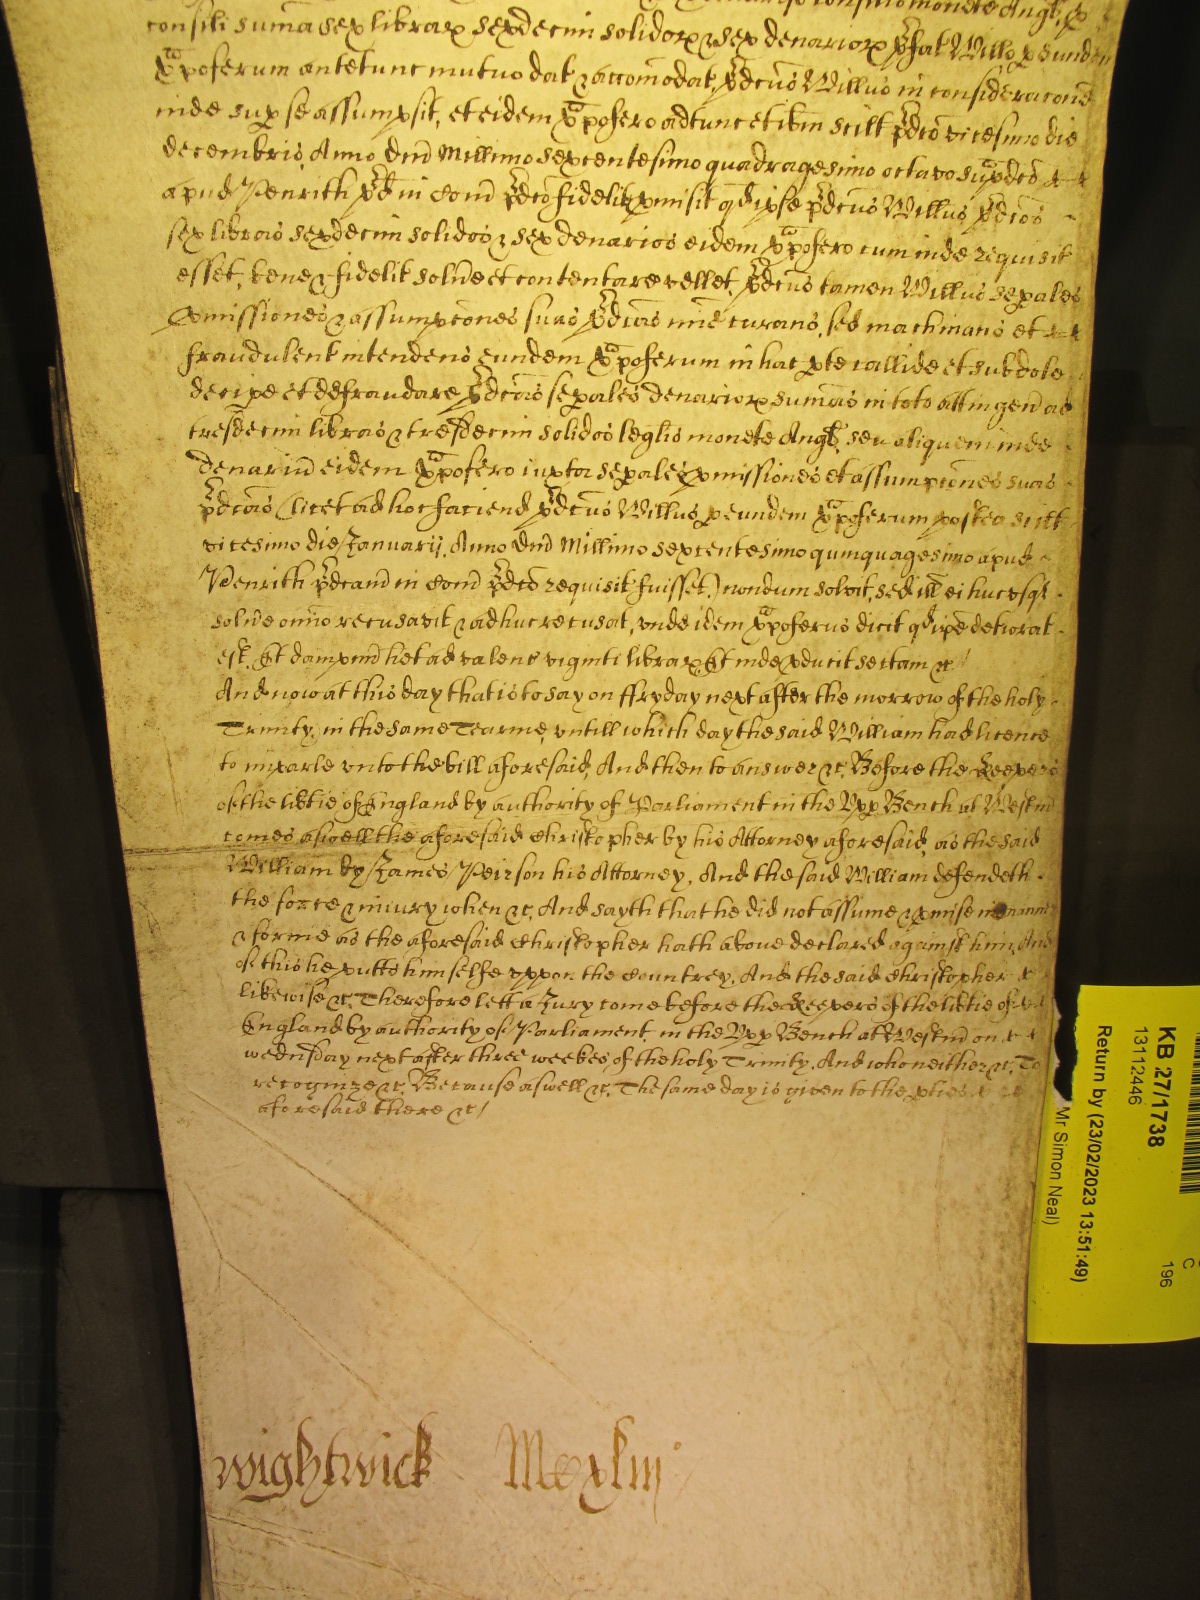 consili suma sex librar sexdecim solidor & sex denarior p̄fat Willo p eundem
Xpoferum antetunc mutuo dat & accomodat, p̄dcus Willus in consideracone
inde sup se assumpsit, et eidem Xpofero adtunc et ib̄m scilt p̄dco vicesimo die
decembris, Anno Dn̄i Millimo sexcentesimo quadragesimo octavo sup̄dco
apud Penrith p̄d in Com̄ p̄dco fidelit pmisit qd ipse p̄dcus Willus p̄dcas
sex libras sexdecim solidos & sex denarios eidem Xpofero cum inde requisit
esset, bene & fidelit solve et contentare vellet, p̄dcus tamen Willus sepales
pmissiones & assumpcones suas p̄dcas mīe curans, sed machinans et
fraudulent intendens eundem Xpoferum in hac pte callide et subdole
decipe et defraudare p̄dcas sepales denarior sum̄as in toto attingen ad
tresdecim libras & tresdecim solidos leglis monete Angl, seu aliquem inde
denariu eidem Xpofero iuxta sepales pmissiones et assumpcones suas
p̄dcas (licet ad hoc faciend p̄dcus Willus p eundem Xpoferum postea scilt
vicesimo die Januarij, Anno Dn̄i Millimo sexcentesimo quinquagesimo apud
Penrith p̄dcam in Com̄ p̄dco requisit fuisset) nondum solvit, sed ill ei hucusq
solve om̄io recusavit & adhuc recusat, unde idem Xpoferus dicit qd ipe deteriorat
est, Et dampnu het ad valenc viginti librar Et inde pducit sectam &c /
And now at this day that is to say on ffryday next after the morrow of the holy
Trinity, in the same Tearme, untill which day the said William had licence
to imparle unto the bill aforesaid, And then to answer &c, Before the Keepers
of the libtie of England by authority of Parliament in the Upp Bench at Westm̄
comes aswell the aforesaid Christopher by his Attorney aforesaid, as the said
William by James Peirson his Attorney, And the said William defendeth
the force & iniury when &c, And sayth that he did not assume & pmise in manner
& forme as the aforesaid Christopher hath above declared against him, And
of this he putts himselfe uppon the Countrey, And the said Christopher
likewise &c, Therefore lett a Jury come before the Keepers of the libtie of
England by authority of Parliament, in the Upp Bench at Westm̄ on
wednesday next after three weekes of the holy Trinity, And who neither &c, To
recognize &c, Because aswell &c, The same day is given to the pties
aforesaid there &c /
wightwick Mcxliij
KB 27/1738
13112446
Return by (23/02/2023 13:51:49)
Mr Simon Neal)
196
C